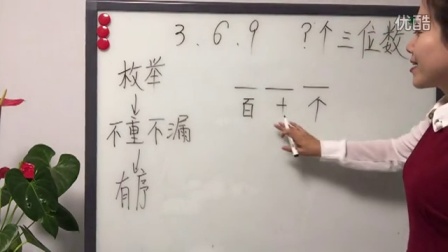 3、6、9 ?个三位数
枚举
不重不漏
有序
百 十 个
优酷